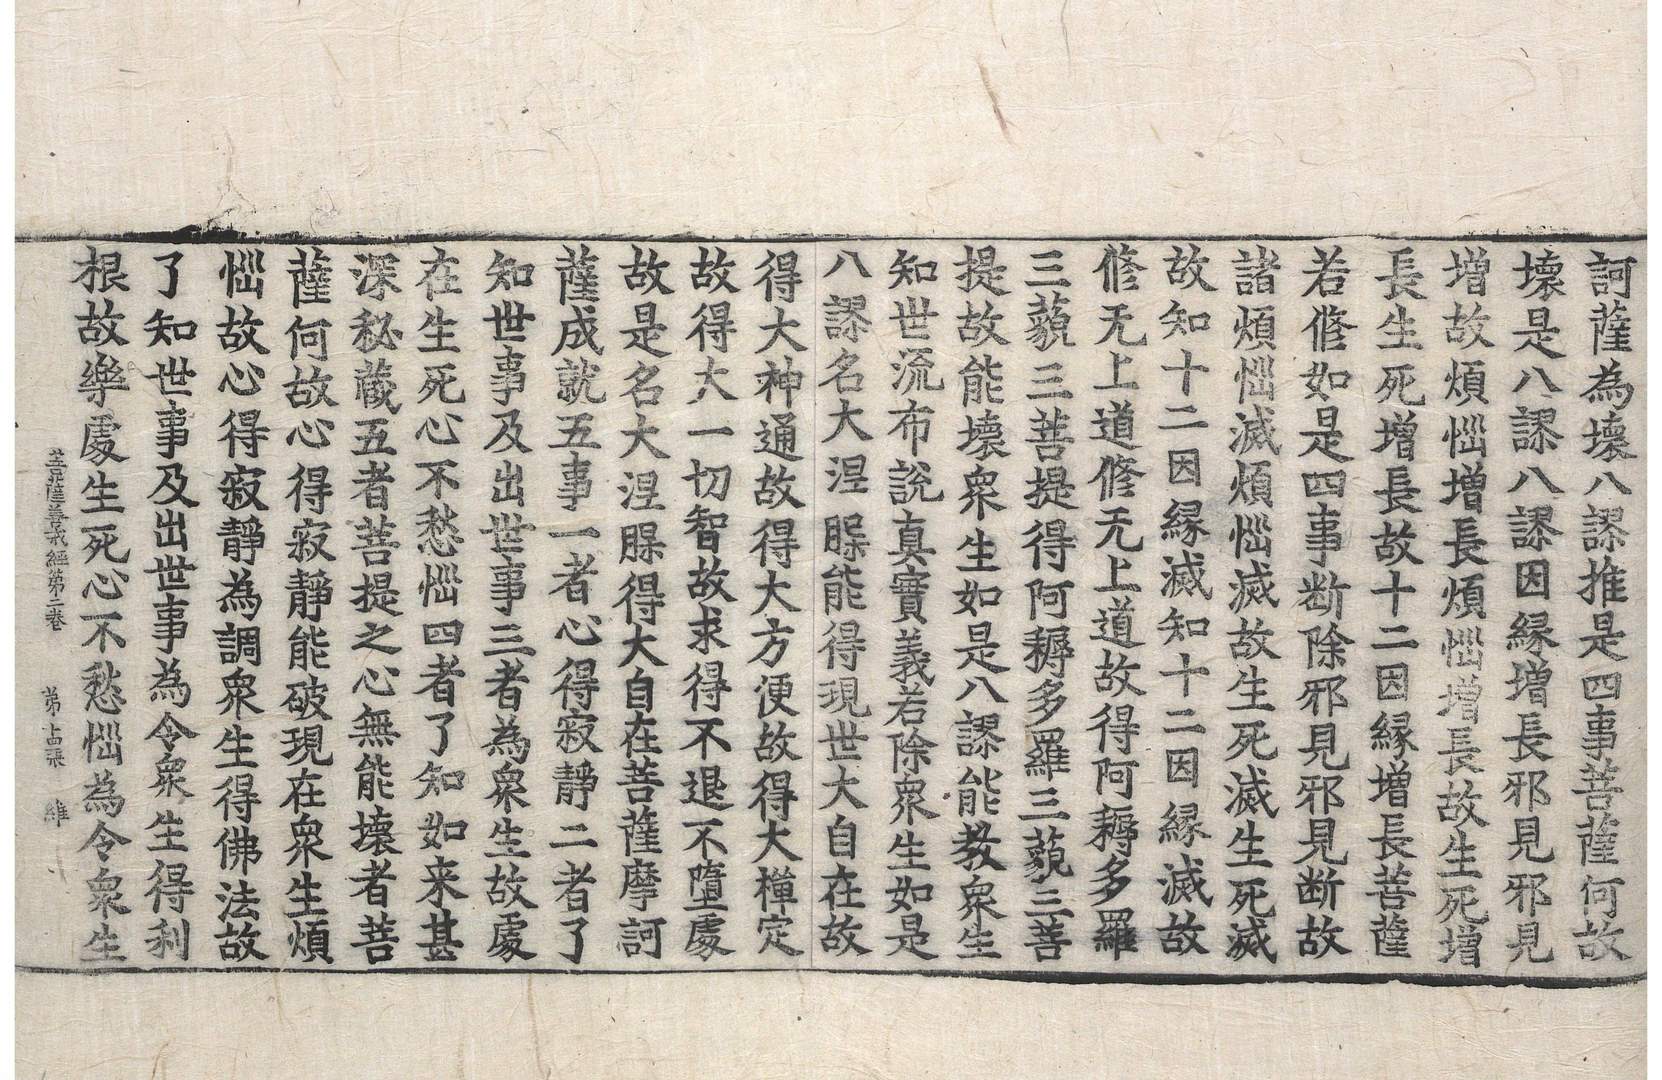 訶薩為壞八謬推是四事菩薩何故
壞是八謬八謬因縁增長邪見邪見
增故煩惱增長煩惱增長故生死增
長生死增長故十二因縁增長菩薩
若脩如是四事断除邪見邪見断故
諸煩惱滅煩惱滅故生死滅生死滅
故知十二因縁滅知十二因縁滅故
脩无上道修无上道故得阿耨多羅
三藐三菩提得阿耨多羅三藐三菩
提故能壞衆生如是八謬能教衆生
知世流布說真實義若除衆生如是
八謬名大涅槃能得現世大自在故
得大神通故得大方便故得大禪定
故得大一切智故求得不退不墮處
故是名大涅槃得大自在菩薩摩訶
薩成就五事一者心得寂靜二者了
知世事及出世事三者為衆生故處
在生死心不愁惱四者了知如来甚
深秘藏五者菩提之心無能壞者菩
薩何故心得寂靜能破現在衆生煩
惱故心得寂靜為調衆生得佛法故
了知世事及出世事為令衆生得利
根故樂處生死心不愁惱為令衆生
菩薩善戒經第二卷　第占張　維